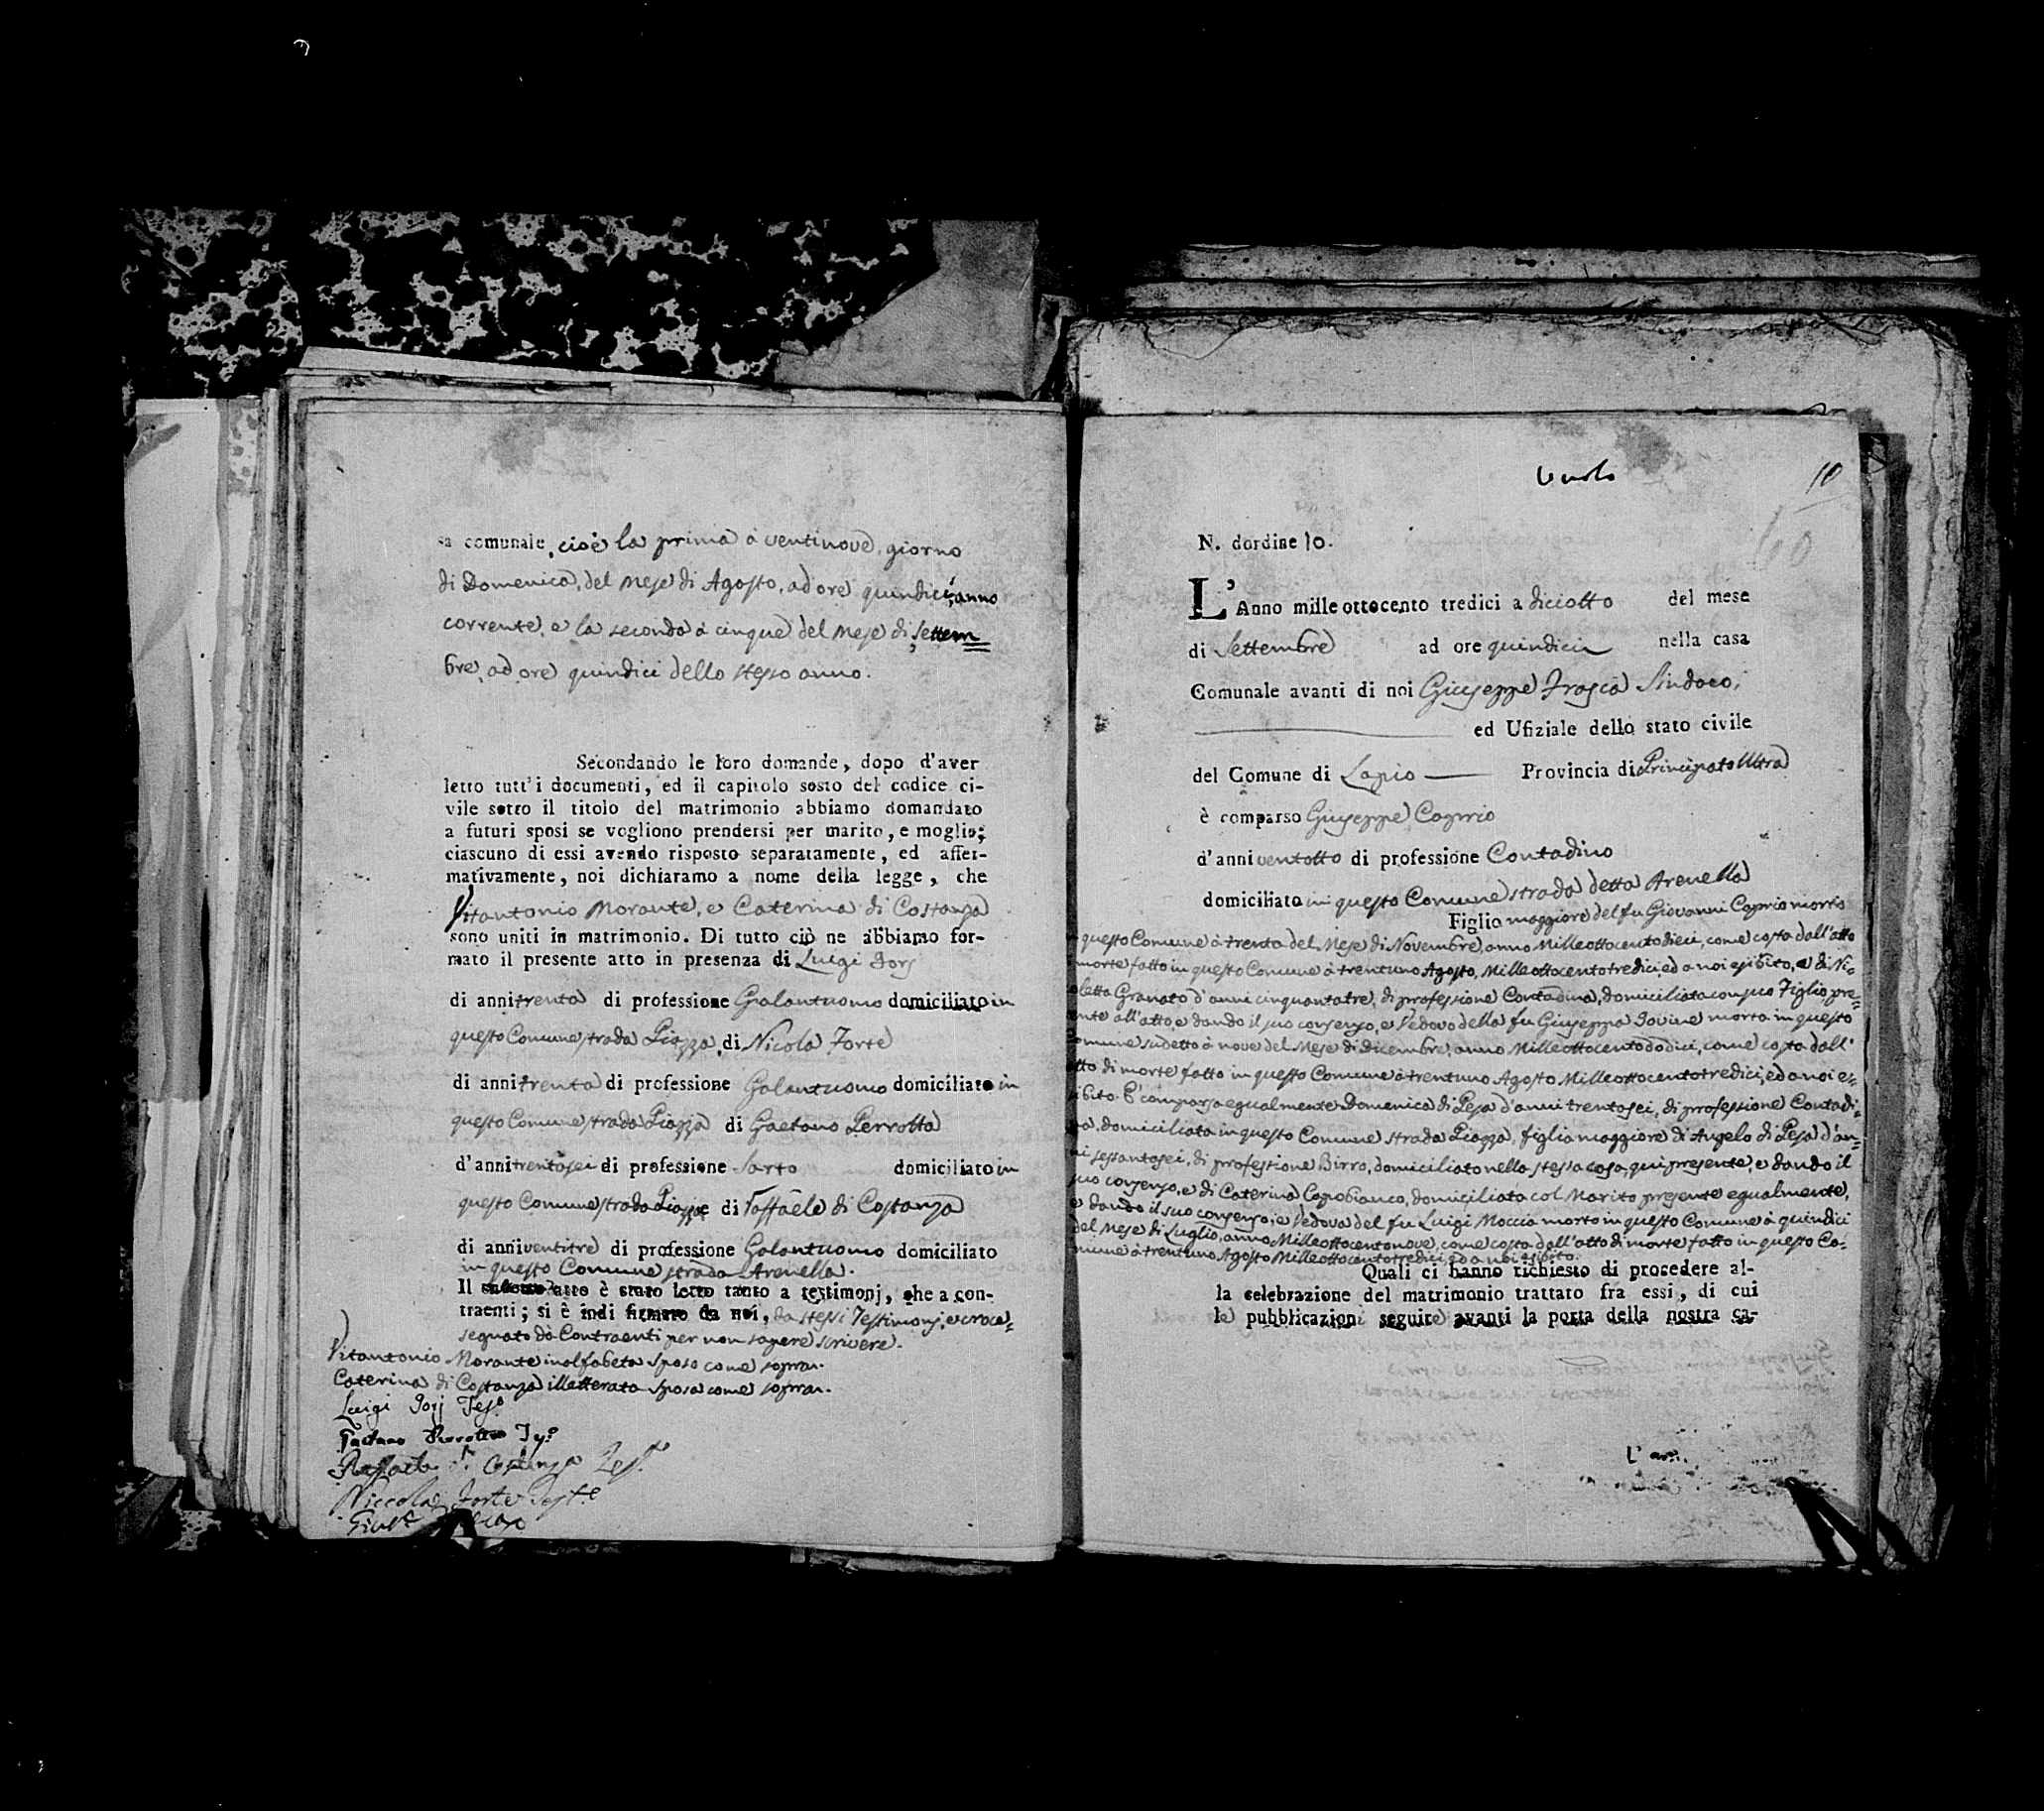 sa comunale, cioè la prima à ventinove, giorno
di Domenica, del Mese di Agosto, ad ore quindici, anno
corrente, e la seconda à cinque del Mese di Settem=
bre, ad ore quindici dello stesso anno.
Secondando le loro domande, dopo d'aver
letto tutt'i documenti, ed il capitolo sesto del codice ci-
vile sotto il titolo del matrimonio abbiamo domandato
a futuri sposi se vogliono prendersi per marito, e moglie;
ciascuno di essi avendo risposto separatamente, ed affer-
mativamente, noi dichiaramo a nome della legge, che
Vitantonio Morante, e Caterina di Costanza
sono uniti in matrimonio. Di tutto ciò ne abbiamo for-
mato il presente atto in presenza di Luigi Jorj
di anni trenta di professione Galantuomo domiciliato in
questo Comune strada Piazza, di Nicola Forte
di anni trenta di professione Galantuomo domiciliato in
questo Comune strada Piazza di Gaetano Perrotta
d'anni trentasei di professione Sarto domiciliato in
questo Comune strada Piazza e di Raffaele di Costanza
di anni ventitre di professione Galantuomo domiciliato
in questo Comune strada Arenella.
Il atto è stato letto tanto a testimonj, che a con-
traenti; si è indi firmato da noi, da stessi Testimonj, e croce=
segnato dà Contraenti per non sapere scrivere.
Vitantonio Morante inalfabeta sposo come sopra.
Caterina di Costanza illetterata sposa come sopra.
Luigi Jorj Teso
Gaetano Perrotta
Raffaele di Costanza Test.
Niccola Forte Teste
L' uno
10
60
N. dordine 10.
L'Anno mille ottocento tredici a diciotto del mese
di Settembre ad ore quindici nella casa
Comunale avanti di noi Giuseppe Frascà Sindaco,
ed Ufiziale dello stato civile
del Comune di Lapio Provincia di Principato Ultra
è comparso Giuseppe Caprio
d'anni ventotto di professione Contadino
domiciliato in questo Comune strada detta Arenella
Figlio maggiore del fu Giovanni Caprio morto
questo Comune à trenta del Mese di Novembre, anno Milleottocentodieci, come costa dall'atto
morte fatto in questo Comune à trentuno Agosto, Milleottocentotredici, ed a noi esibito, e di Ni=
coletta Granato d'anni cinquantatre, di professione Contadina, domiciliata con suo Figlio, pre=
sente all'atto, e dando il suo consenso, e Vedovo della fu Giuseppa Jovine morta in questo
Comune sudetto à nove del Mese di Dicembre, anno Milleottocentododici, come costa dall'
atto di morte fatto in questo Comune à trentuno Agosto Milleottocentotredici, ed a noi e=
sibito. E' comparsa egualmente Domenica di Pesa d'anni trentasei, di professione Contadi=
na, domiciliata in questo Comune strada Piazza, figlia maggiore di Angelo di Pesa d'an=
ni sessantasei, di professione Birro, domiciliato nella stessa casa, qui presente, e dando il
suo consenso, e di Caterina Capobianco, domiciliata col Marito presente egualmente,
e dando il suo consenso, e Vedova del fu Luigi Moccia morto in questo Comune à quindici
del Mese di Luglio, anno Milleottocentonove, come costa dall'atto di morte fatto in questo Co=
mune à trentuno Agosto Milleottocentotredici, ed a noi esibito.
Quali ci hanno richiesto di procedere al-
la celebrazione del matrimonio trattato fra essi, di cui
le pubblicazioni seguite avanti la porta della nostra ca-